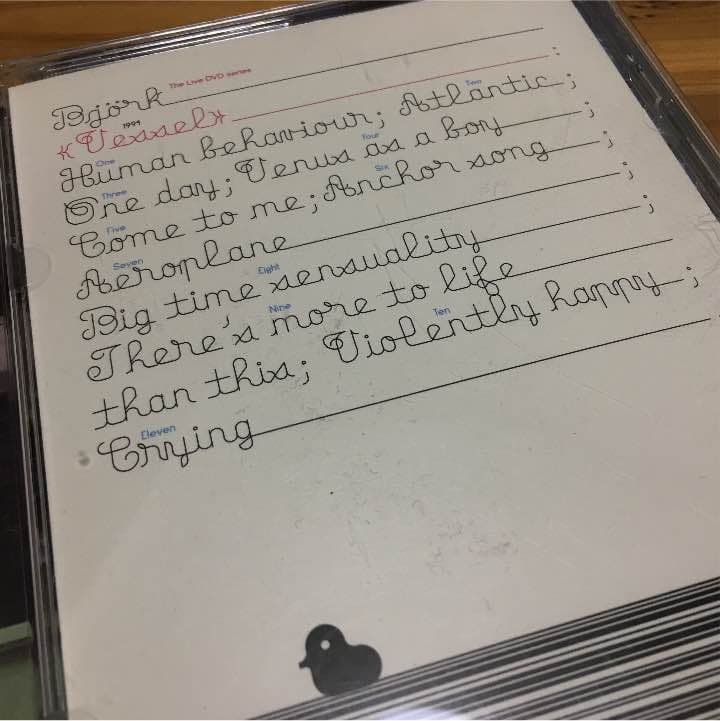 The Live DVD series
Björk
1994
«Vessel» :
One Two
Human behaviour; Atlantic;
Three Four
One day; Venus as a boy;
Five Six
Come to me; Anchor song;
Seven
Aeroplane;
Eight
Big time sensuality;
Nine
There's more to life
Ten
than this; Violently happy;
Eleven
Crying